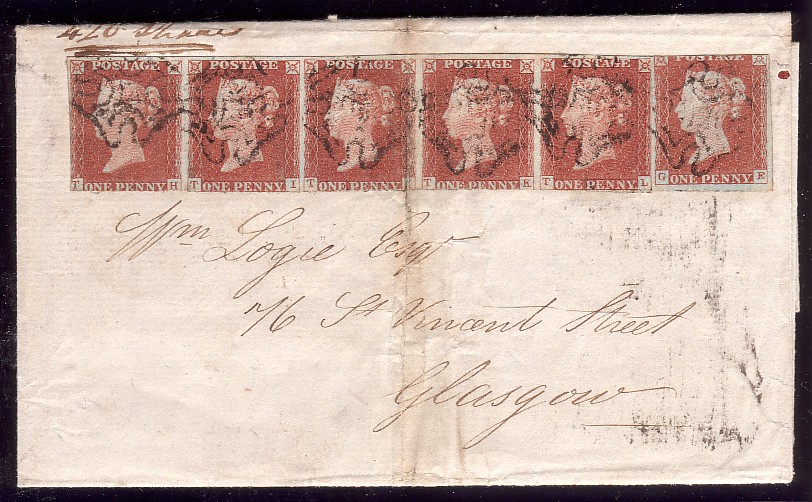 420 Shares
POSTAGE POSTAGE POSTAGE POSTAGE POSTAGE POSTAGE
ONE PENNY ONE PENNY ONE PENNY ONE PENNY ONE PENNY ONE PENNY
T H T I T T K T L G E
Wm Logie Esqr
76 St Vincent Street
Glasgow